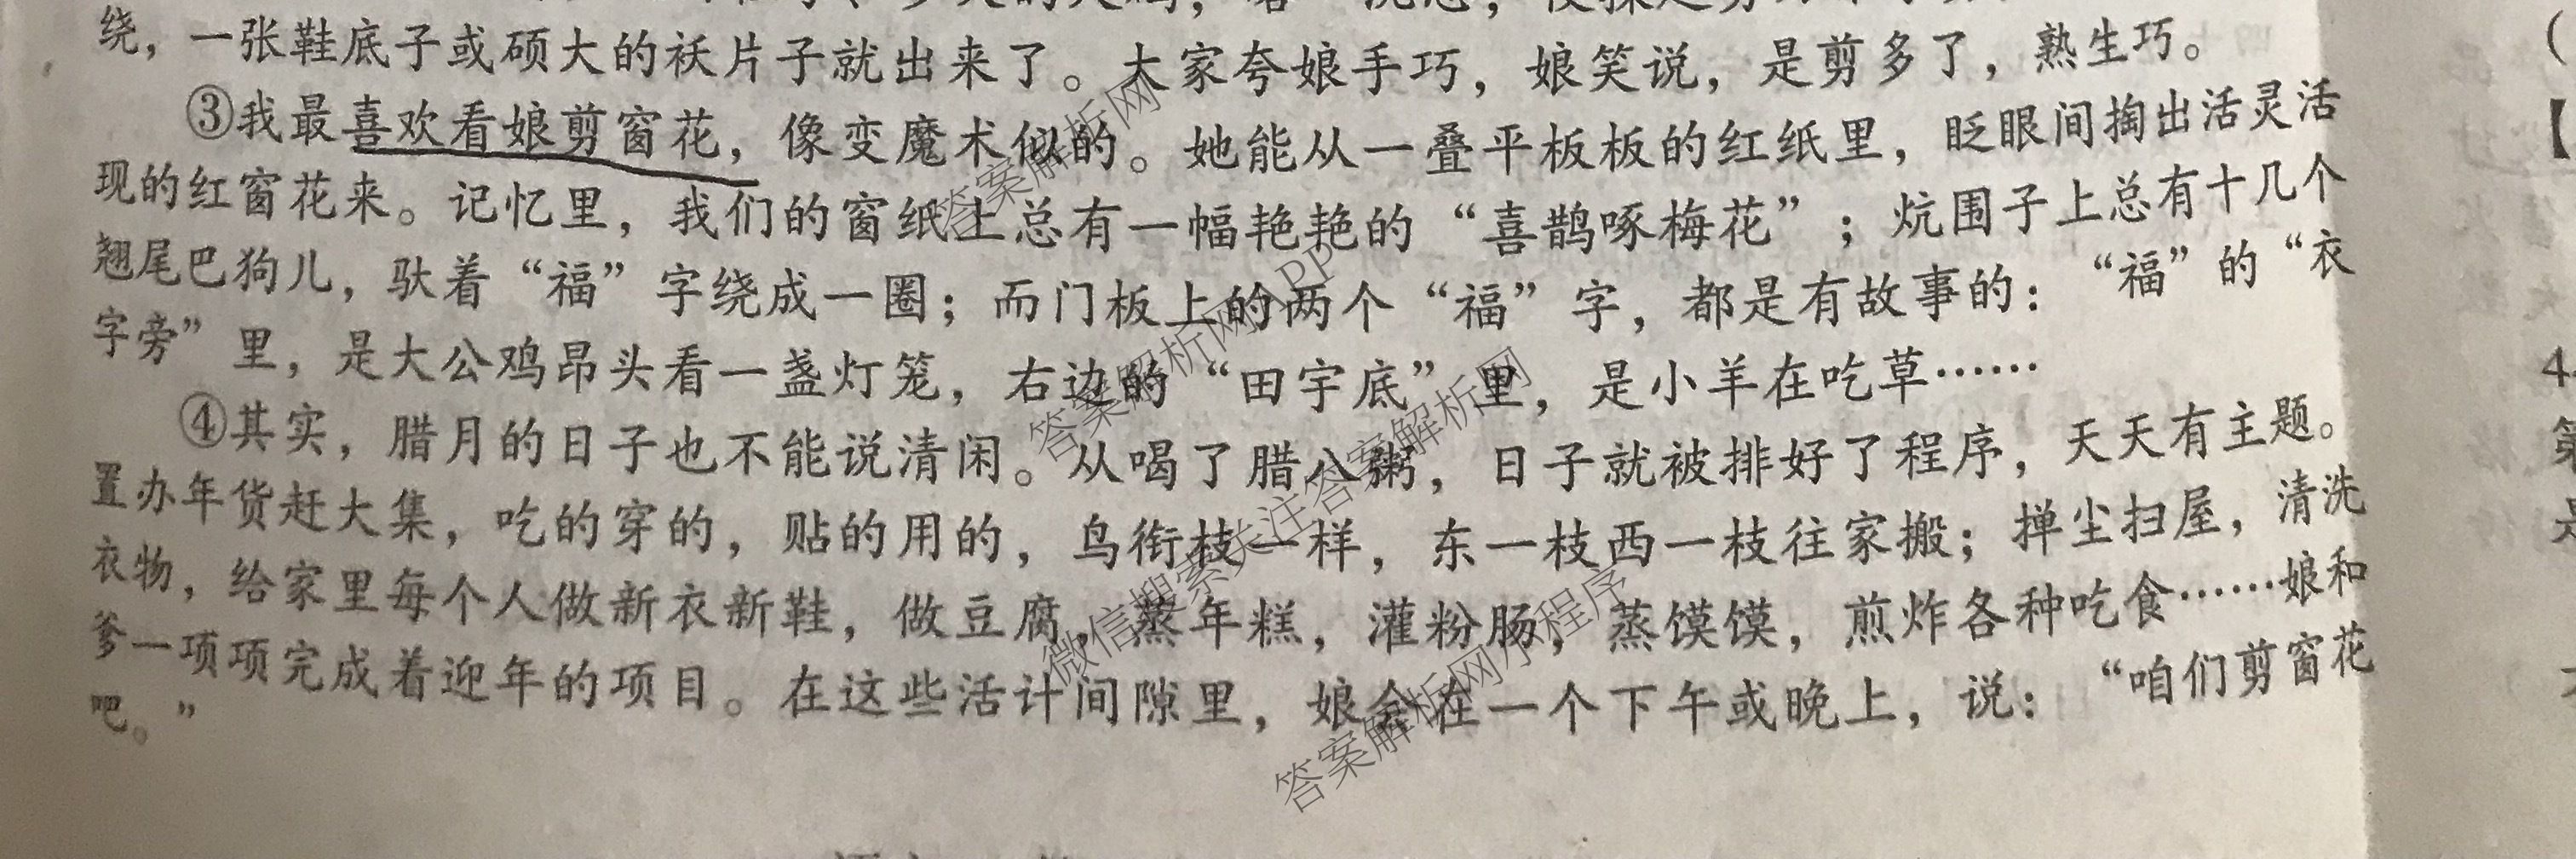 绕，一张鞋底子或硕大的袄片子就出来了。大家夸娘手巧，娘笑说，是剪多了，熟生巧。
③我最喜欢看娘剪窗花，像变魔术似的。她能从一叠平板板的红纸里，眨眼间掏出活灵活
现的红窗花来。记忆里，我们的窗纸上总有一幅艳艳的“喜鹊啄梅花”；炕围子上总有十几个
翘尾巴狗儿，驮着“福”字绕成一圈；而门板上的两个“福”字，都是有故事的：“福”的“衣
字旁”里，是大公鸡昂头看一盏灯笼，右边的“田字底”里，是小羊在吃草……
④其实，腊月的日子也不能说清闲。从喝了腊八粥，日子就被排好了程序，天天有主题。
置办年货赶大集，吃的穿的，贴的用的，鸟衔枝一样，东一枝西一枝往家搬；掸尘扫屋，清洗
衣物，给家里每个人做新衣新鞋，做豆腐，蒸年糕，灌粉肠，蒸馍馍，煎炸各种吃食……娘和
爹一项项完成着迎年的项目。在这些活计间隙里，娘会在一个下午或晚上，说：“咱们剪窗花
吧。”
答案解析网
答案解析网APP
微信搜索关注答案解析网
答案解析网小程序